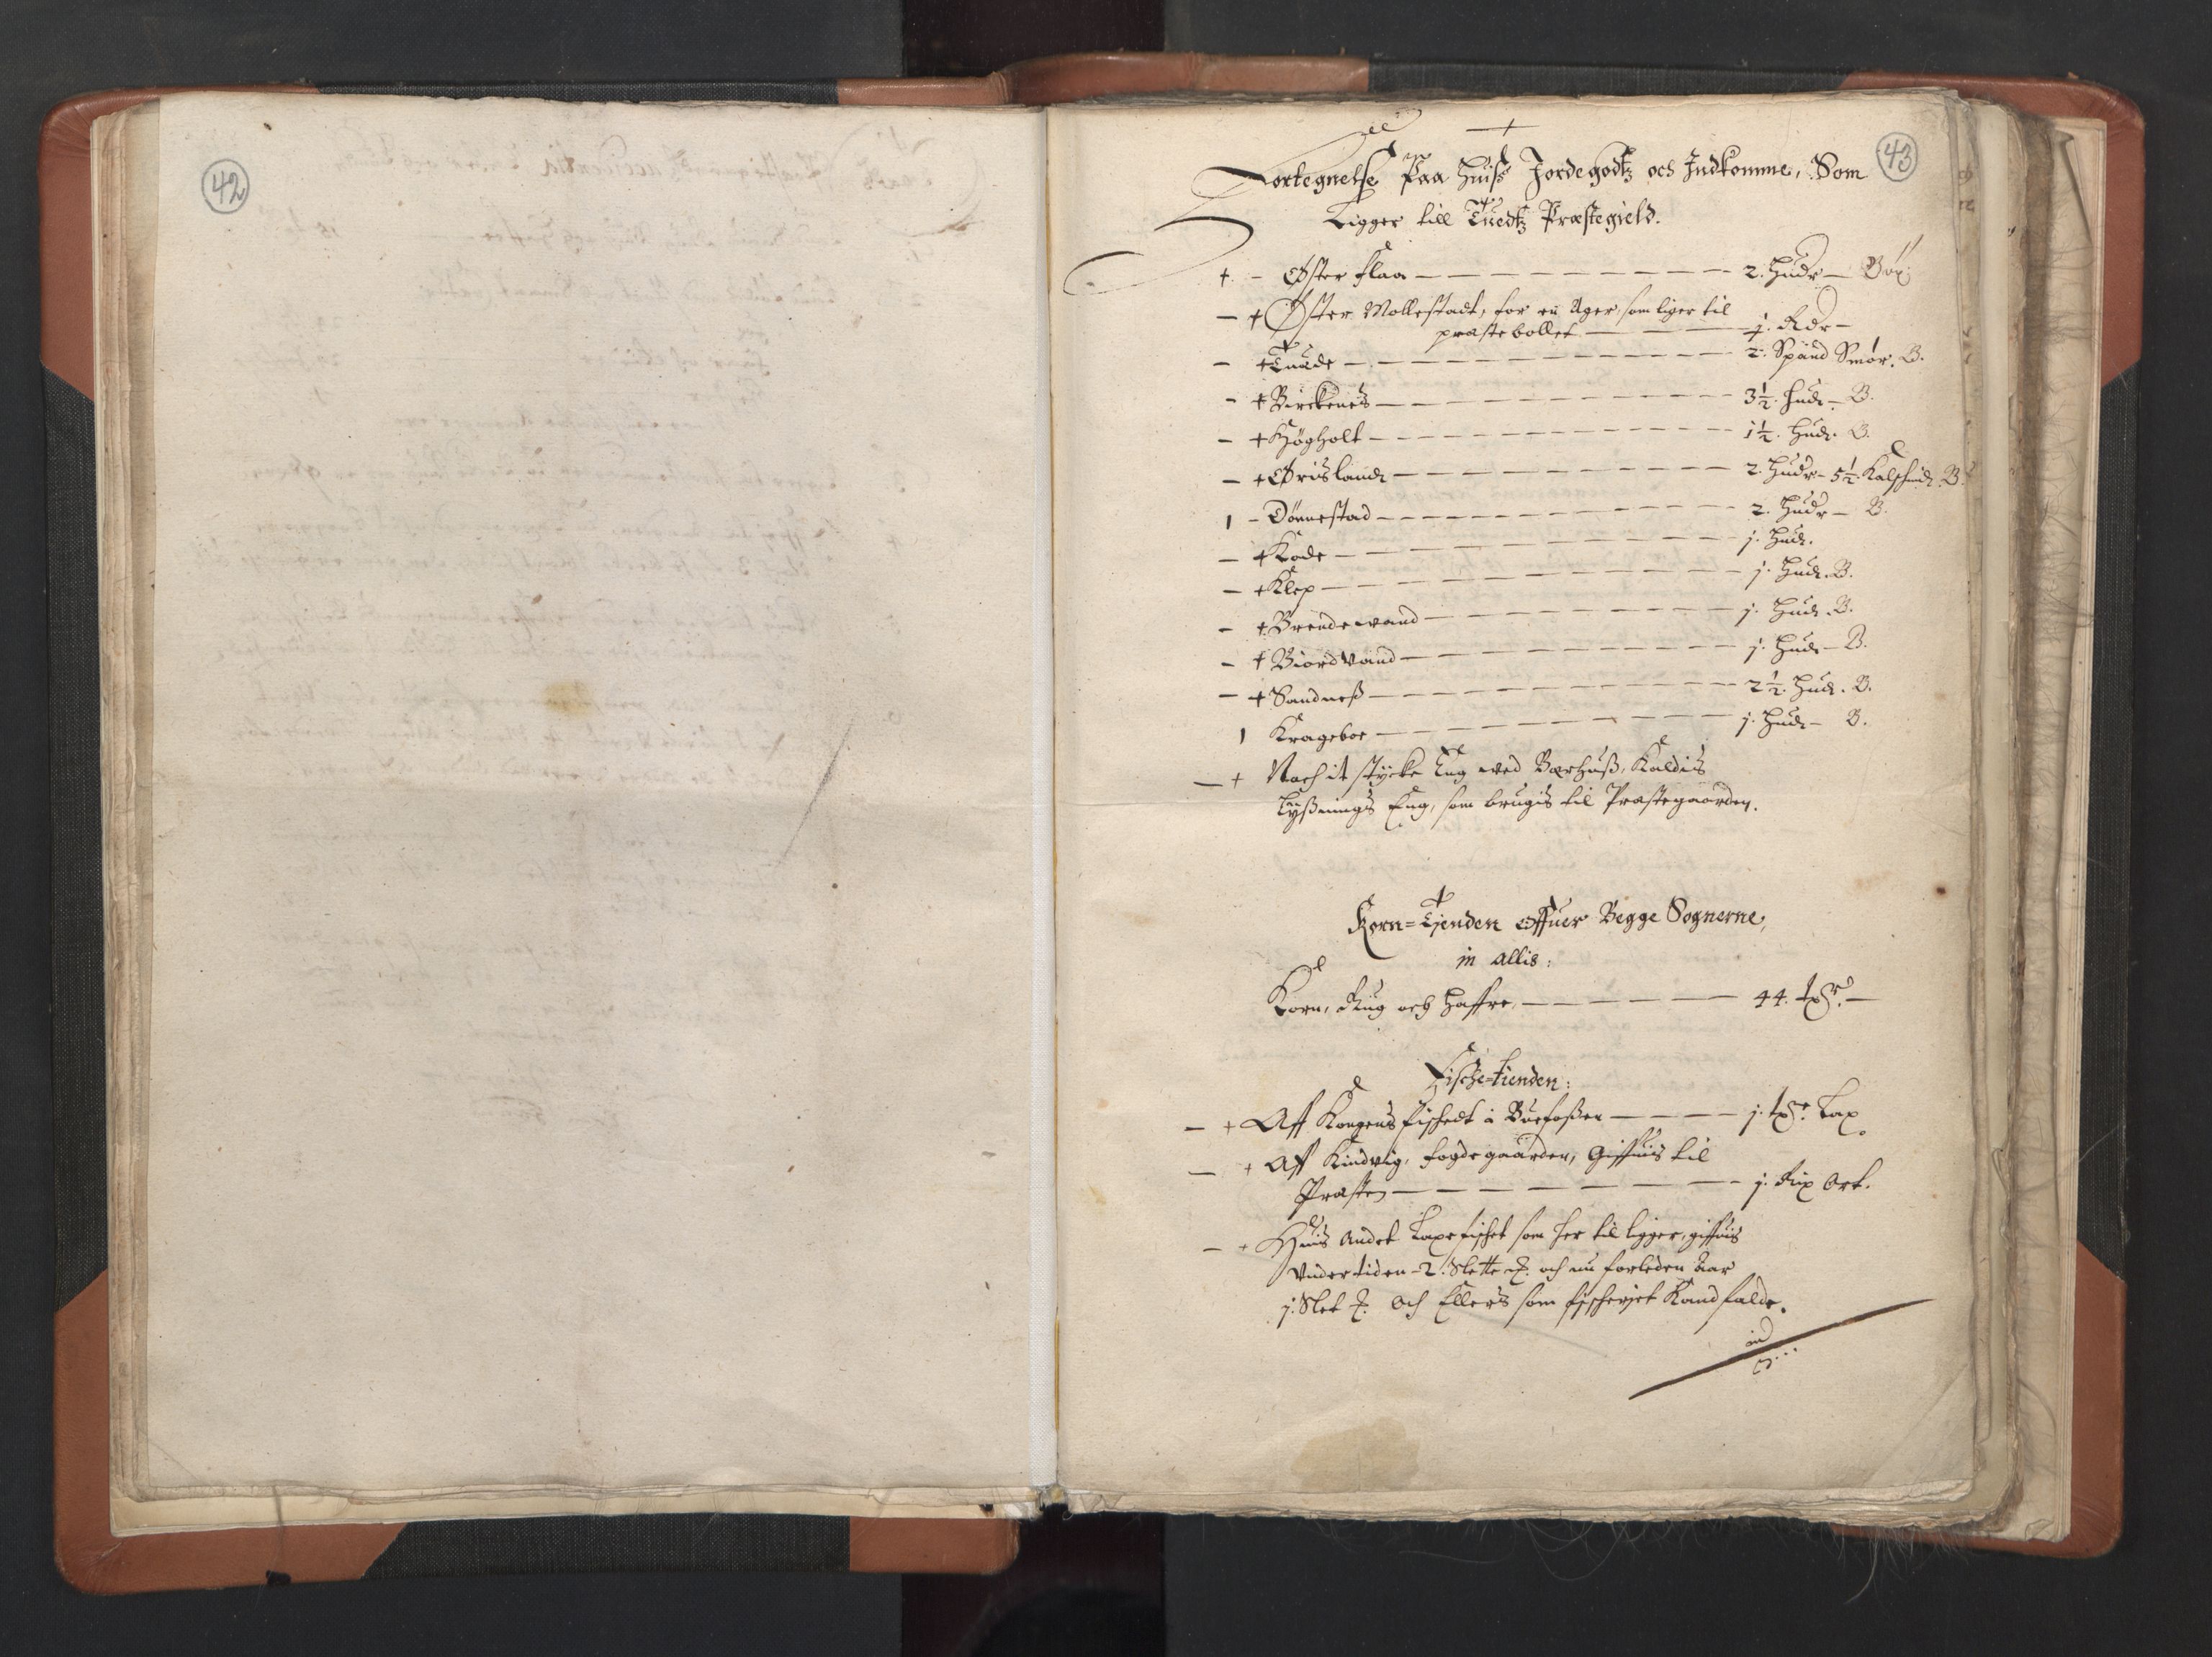 42
43
Fortegnelse Paa huis Jordegodtz och Indkomme, Som
Ligger till Tuedtz Præstegield.
+ - Øster flaa - - - 2. hudr - Böx:
- + Øster Mollestadt, for en Ager som liger til
præstebollet - - - j. Rdr -
- + Tuåde - - - 2. Spånd Smør. B.
- + Birckenes - - - 3½. hudr - B.
- + Høgholt - - - 1½ hudr. B.
- + Ørislandt - - - 2. hudr - 5½ Kalfskind. B.
1 - Dönnestad - - - 2. hudr - B.
- + Kode - - - j. hud.
- + Klep - - - j. hud. B.
- + Brendewand - - - j. hud. B.
- + Biordvand - - - j. hud - B.
- + Sandneß - - - 2½. hud. B.
1 Krageboe - - - j. hud - B.
- + Noch it stycke Eng wed Bærhuß, Kaldis
Lyßnings Eng, som brugis til Præstegaarden.
Korn=Tjenden offuer Begge Sognerne,
in allis:
Korn, Rug och haffre, - - - 44. tdr. -
Fische=tienden:
- + Aff Kongens fischedt i Boefoßen - - - j. tde. Lax
- + Aff Kindvig, fogdegaarden, Giffuis til
Præsten - - - j. Rix Ort.
- + Huis Andet Laxefischet som her til ligger, giffuis
Vndertiden - 2. Slette d. och nu forleden Aar
j. Slet d. Och Ellers som fischeriet Kand falde.